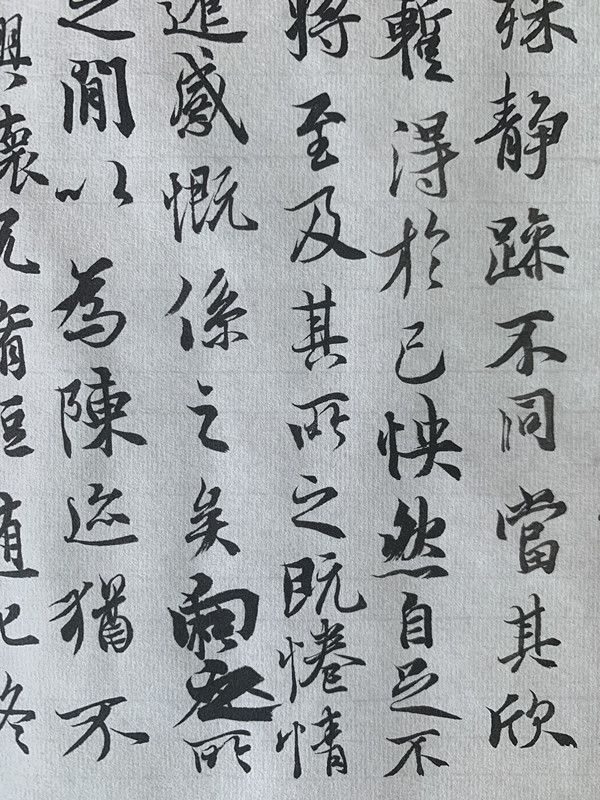 殊静躁不同當其欣
暫得於己怏然自足不
將至及其所之既惓情
感慨係之矣向之所
之閒以為陳迹猶不
興懷况脩短随化終